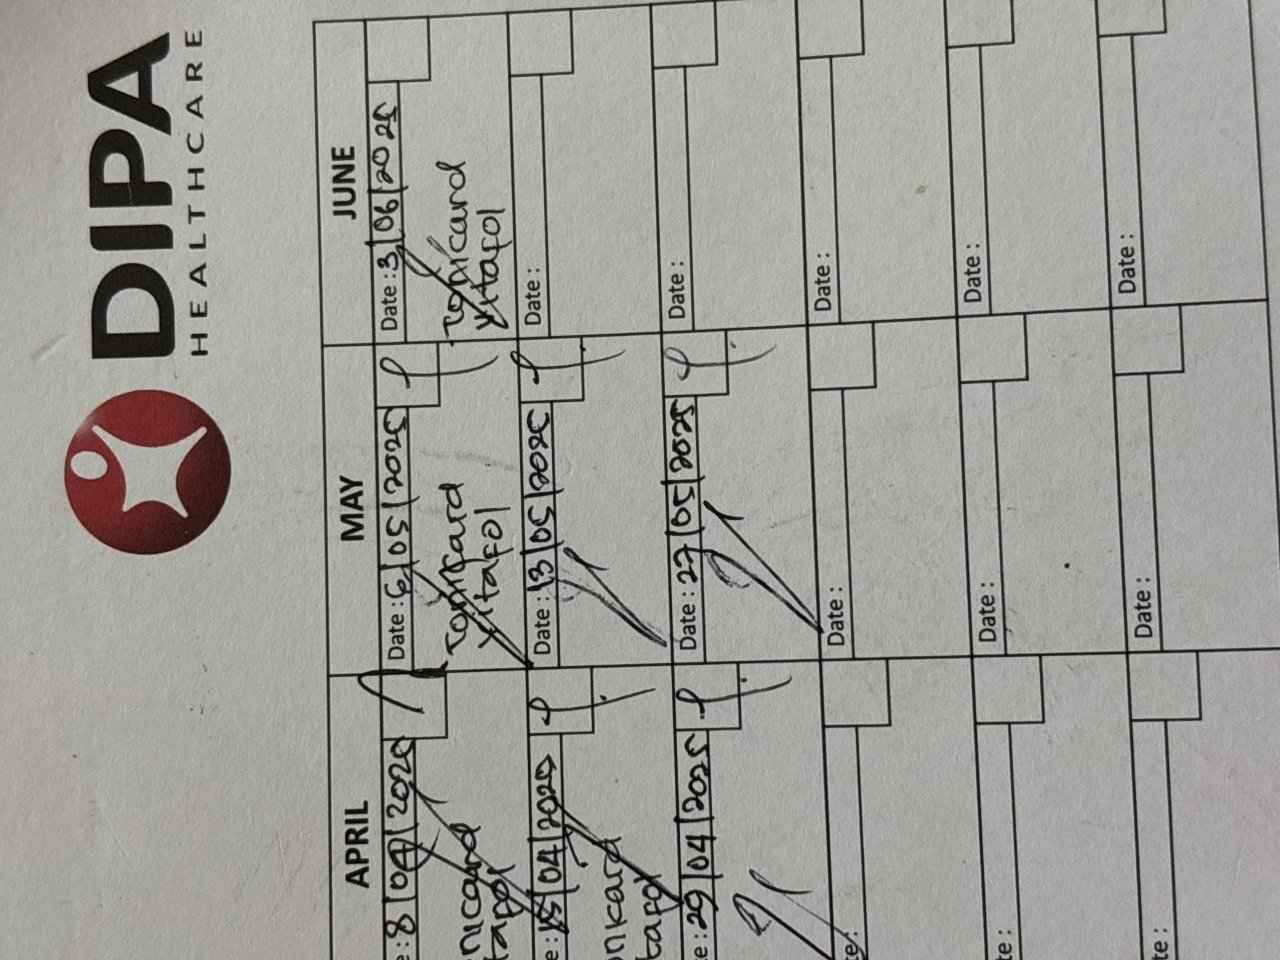 DIPA
HEALTHCARE
APRIL
MAY
JUNE
e : 8/04/2025
nicard
tafol
Date : 6/05/2025
Tonicard
Vitafol
Date : 3/06/2025
Tonicard
Vitafol
e : 15/04/2025
nicard
tafol
Date : 13/05/2025
Date :
e : 29/04/2025
Date : 27/05/2025
Date :
te :
Date :
Date :
te :
Date :
Date :
te :
Date :
Date :